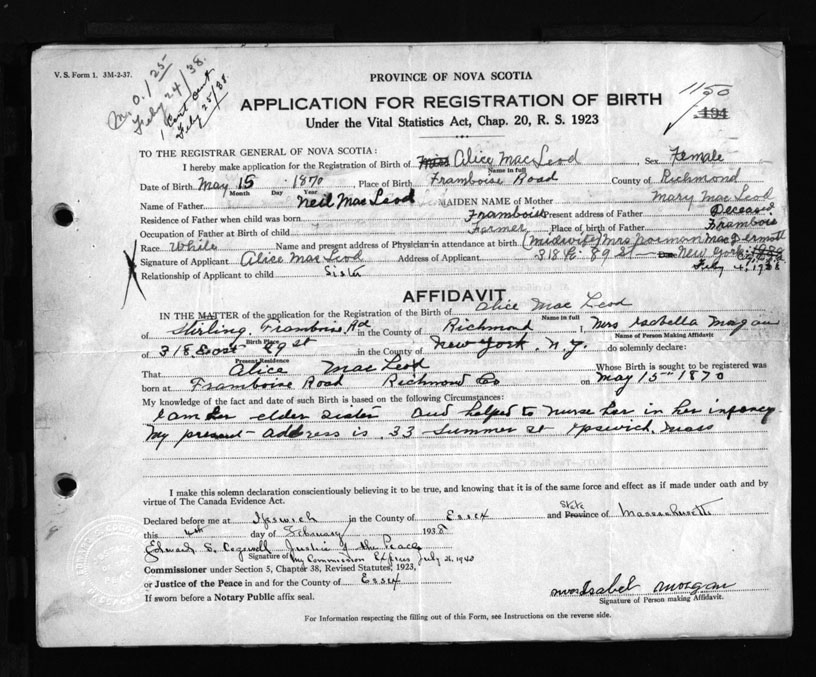 V. S. Form 1. 3M-2-37.
PROVINCE OF NOVA SCOTIA
1150
494
APPLICATION FOR REGISTRATION OF BIRTH
Under the Vital Statistics Act, Chap. 20, R. S. 1923
TO THE REGISTRAR GENERAL OF NOVA SCOTIA:
I hereby make application for the Registration of Birth of Miss Alice MacLeod Sex Female
Name in full
Date of Birth May 15 1870, Place of Birth Framboise Road County of Richmond
Month Day Year
Name of Father Neil MacLeod MAIDEN NAME of Mother Mary MacLeod
Residence of Father when child was born Framboise Present address of Father Deceased
Occupation of Father at Birth of child Farmer Place of birth of Father Framboise
Race White Name and present address of Physician in attendance at birth (Midwife) Mrs Norman MacDermott
Signature of Applicant Alice MacLeod Address of Applicant 318 E. 89 St New York
Relationship of Applicant to child Sister Feby 4, 1938
AFFIDAVIT
IN THE MATTER of the application for the Registration of the Birth of Alice MacLeod
Name in full
of Stirling, Framboise, Rd in the County of Richmond I, Mrs Isabella Morgan
Birth Place Name of Person Making Affidavit
of 318 East 89 St in the County of New York, N.Y. do solemnly declare:
Present Residence
That Alice MacLeod Whose Birth is sought to be registered was
born at Framboise Road Richmond Co on May 15-1870
My knowledge of the fact and date of such Birth is based on the following Circumstances:
I am her elder sister and helped to nurse her in her infancy
My present address is, 33 Summer St Ipswich, Mass
I make this solemn declaration conscientiously believing it to be true, and knowing that it is of the same force and effect as if made under oath and by
virtue of The Canada Evidence Act.
Declared before me at Ipswich in the County of Essex and State Province of Massachusetts
this day of February 1938
Edward S. Cogswell Justice of the Peace
Signature of My Commission Expires July 21, 1940
Commissioner under Section 5, Chapter 38, Revised Statutes, 1923,
or Justice of the Peace in and for the County of Essex
Mrs Isabel Morgan
If sworn before a Notary Public affix seal.
Signature of Person making Affidavit.
For Information respecting the filling out of this Form, see Instructions on the reverse side.